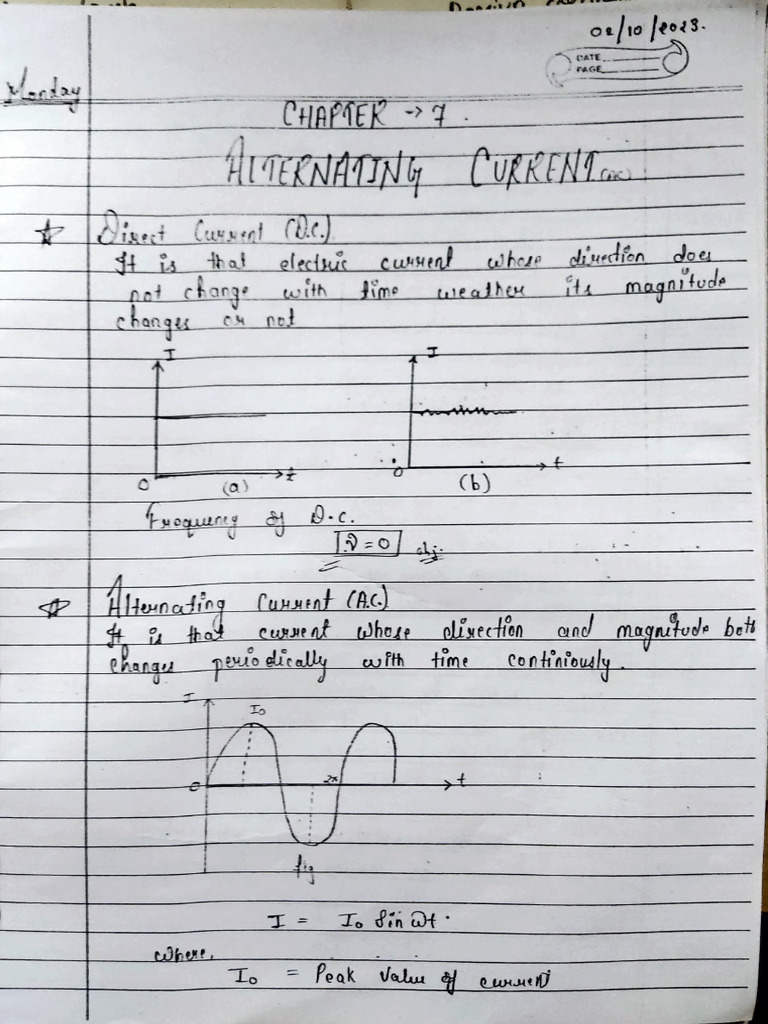 02/10/2023.
DATE
PAGE
Monday
CHAPTER → 7.
ALTERNATING CURRENT
☆ Direct Current (D.C.)
It is that electric current whose direction does
not change with time weather its magnitude
changes or not
I I
O t O t
(a) (b)
Frequency of D.C.
ν = 0 obj.
☆ Alternating Current (A.C.)
It is that current whose direction and magnitude both
changes periodically with time continiously.
I
I₀
O 2π t
fig
I = I₀ Sin ωt.
where,
I₀ = Peak Value of current